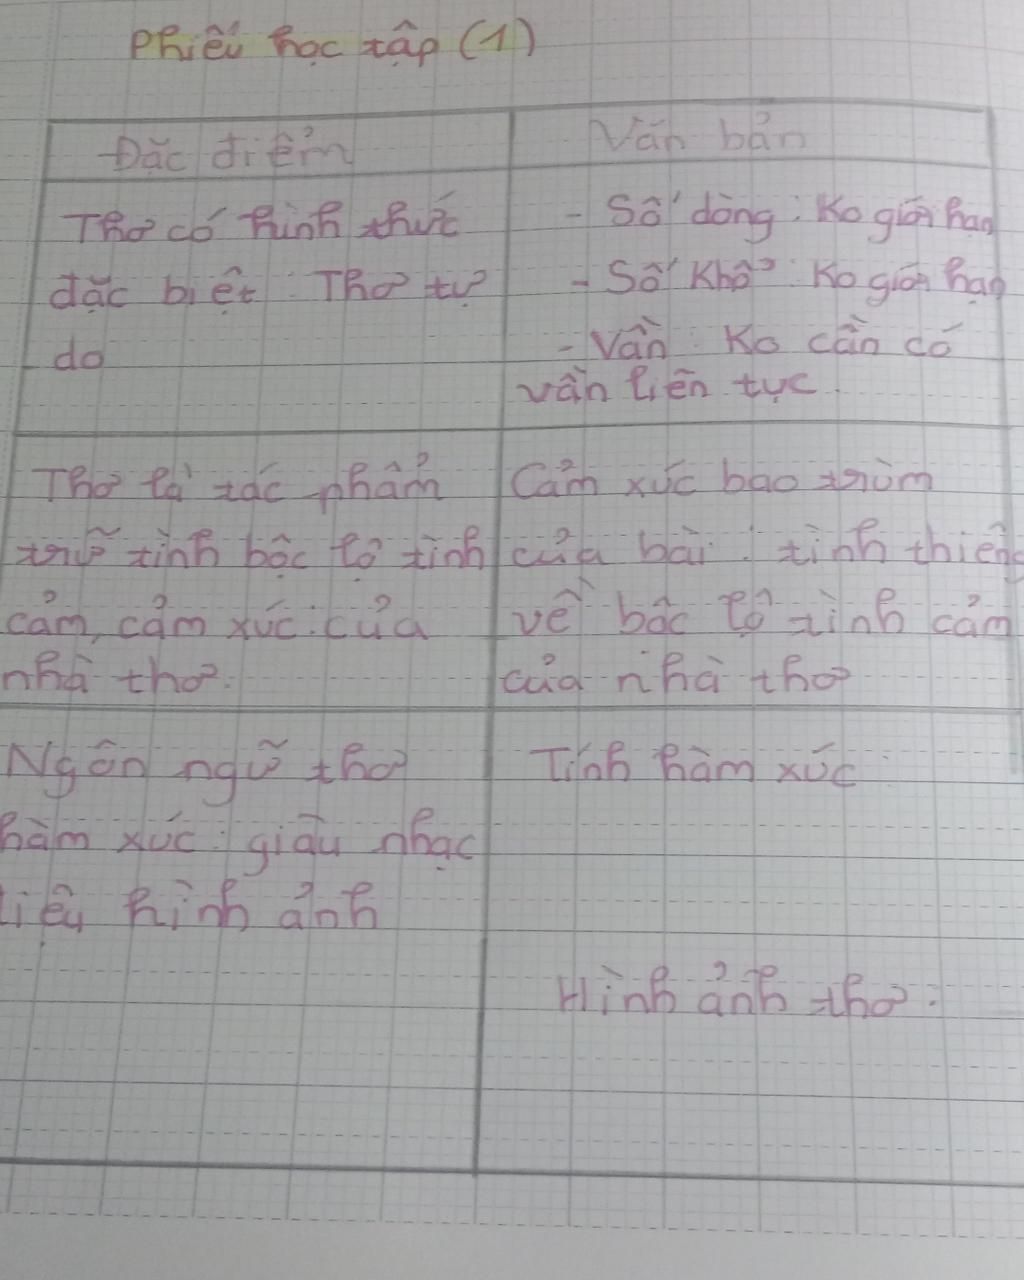 Phiếu học tập (1)
Đặc điểm
Văn bản
Thơ có hình thức
đặc biệt: Thơ tự
do
- Số dòng: Ko giới hạn
- Số Khổ: Ko giới hạn
- Vần: Ko cần có
vần liên tục.
Thơ là tác phẩm
trữ tình bộc lộ tình
cảm, cảm xúc của
nhà thơ.
Cảm xúc bao trùm
của bài: tình thiêng
về bộc lộ tình cảm
của nhà thơ
Ngôn ngữ thơ
hàm xúc: giàu nhạc
liệu hình ảnh
Tính hàm xúc:
Hình ảnh thơ: